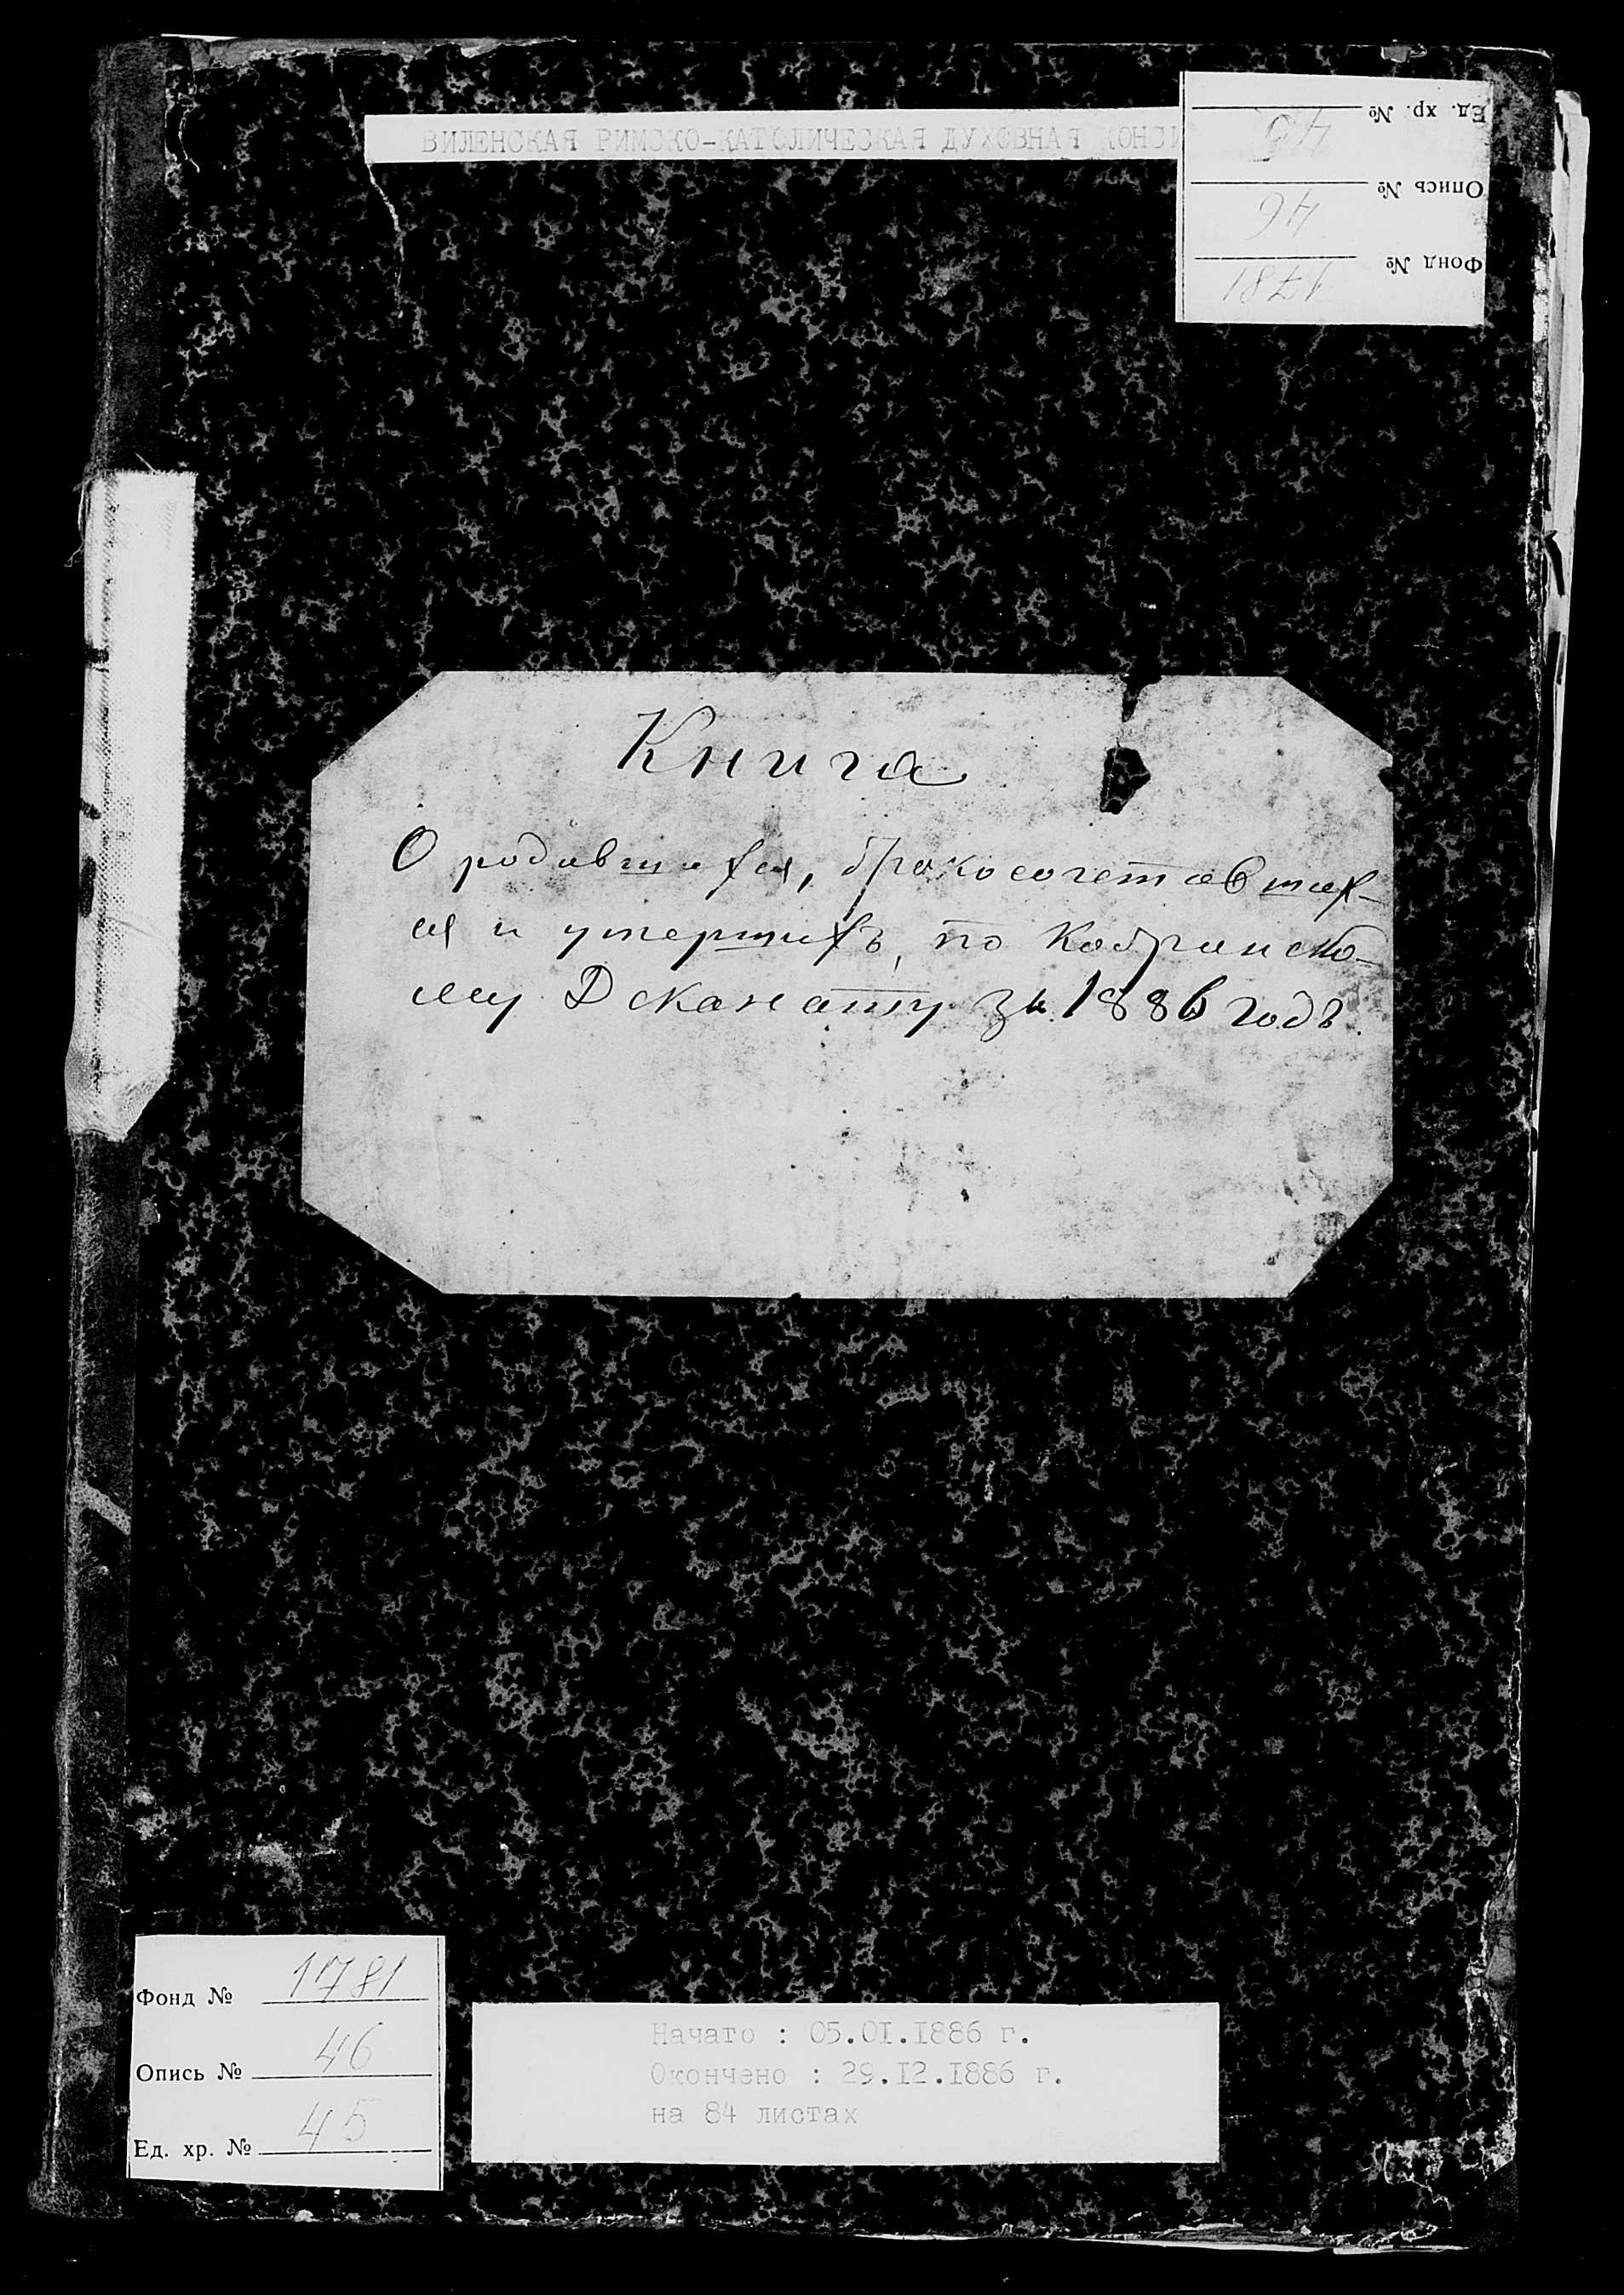 ВИЛЕНСКАЯ РИМСКО-КАТОЛИЧЕСКАЯ ДУХОВНАЯ КОНСИ
Ед. хр. № 45
Опись № 46
Фонд № 1781
Книга
О родившихся, бракосочетавших-
ся и умершихъ, по Кобринско-
му Деканату за 1886 годъ.
Фонд № 1781
Опись № 46
Ед. хр. № 45
Начато : 05.01.1886 г.
Окончено : 29.12.1886 г.
на 84 листах